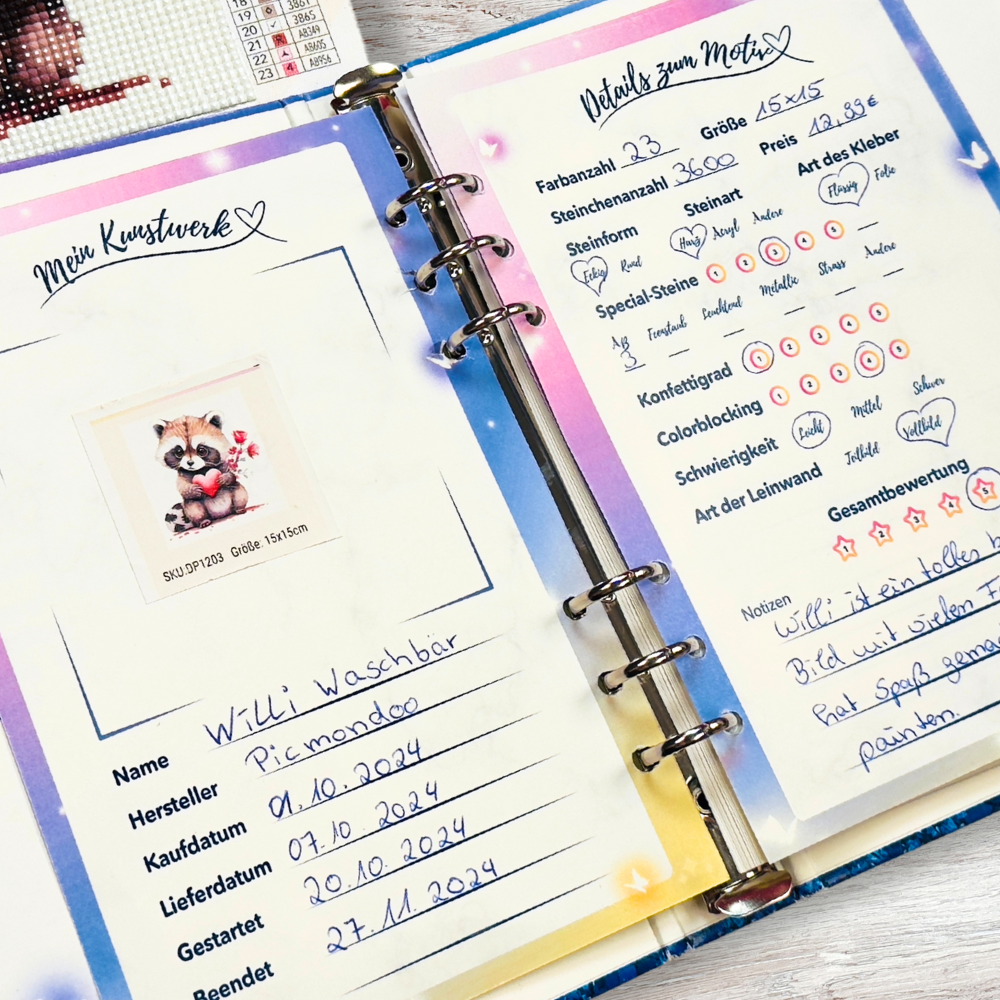 19 3861
20 ✓ 3865
21 AB349
22 AB605
23 4 AB956
Mein Kunstwerk
SKU:DP1203 Größe: 15x15cm
Name Willi Waschbär
Hersteller Picmondoo
Kaufdatum 01.10.2024
Lieferdatum 07.10.2024
Gestartet 20.10.2024
Beendet 27.11.2024
Details zum Motiv
Farbanzahl 23 Größe 15x15
Steinchenanzahl 3600 Preis 12,99€
Steinform Steinart Art des Kleber
Eckig Rund Harz Acryl Andere Flüssig Folie
Special-Steine 1 2 3 4 5
AB Feenstaub Leuchtend Metallic Strass Andere
3
Konfettigrad 1 2 3 4 5
Colorblocking 1 2 3 4 5
Schwierigkeit Leicht Mittel Schwer
Art der Leinwand Teilbild Vollbild
Gesamtbewertung
1 2 3 4 5
Notizen Willi ist ein tolles
Bild mit vielen
hat Spaß
painten.